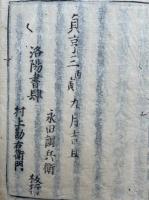 貞享三丙寅九月吉日
洛陽書肆
永田調兵衛
村上勘右衛門
板行